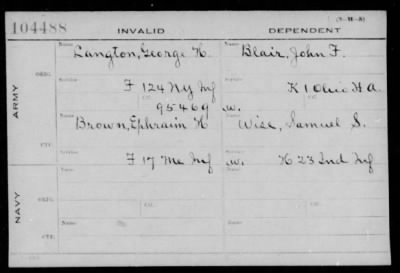 104488 INVALID DEPENDENT (3-M-S)
Name Name
Langton, George H. Blair, John F.
ORIG. Service Service
F 124 NY Inf K 1 Ohio H A.
ARMY Ctf. Ctf.
95469 w.
Name Name
Brown, Ephraim H Wise, Samuel S.
CTF. Service Service
F 17 Me Inf w. H 23 Ind Inf
Name Name
NAVY ORIG.
Ctf. Ctf.
Name Name
CTF.